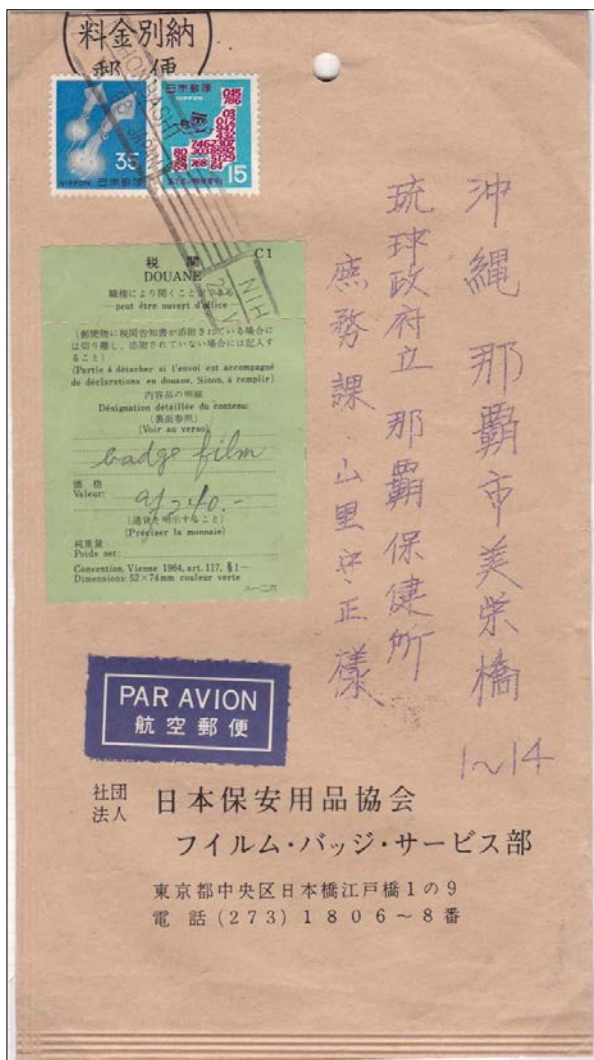 料金別納
郵便
日本郵便
NIPPON
35
NIPPON 日本郵便
15
NIH
C1
税関
DOUANE
職権により開くことができる
peut être ouvert d'office
(郵便物に税関告知書が添附されている場合に
は切り離し、添附されていない場合には記入す
ること)
(Partie à détacher si l'envoi est accompagné
de déclarations en douane. Sinon, à remplir)
内容品の明細
Désignation détaillée du contenu:
(裏面参照)
(Voir au verso)
badge film
価格
Valeur:
240.-
(通貨を明示すること)
(Préciser la monnaie)
純重量
Poids net:
Convention, Vienne 1964, art. 117, §1—
Dimensions: 52×74mm couleur verte
沖縄 那覇市美栄橋
1~14
琉球政府立 那覇保健所
庶務課 山里 正様
PAR AVION
航空郵便
社団
法人
日本保安用品協会
フイルム・バッジ・サービス部
東京都中央区日本橋江戸橋1の9
電話(273)1806~8番